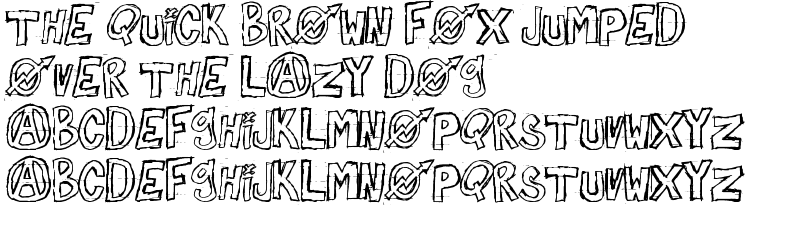 THE QUiCK BROWN FOX JUMPED
OVER THE LAZY DOg
ABCDEFghiJKLMNOPQRSTUVWXYZ
ABCDEFghiJKLMNOPQRSTUVWXYZ